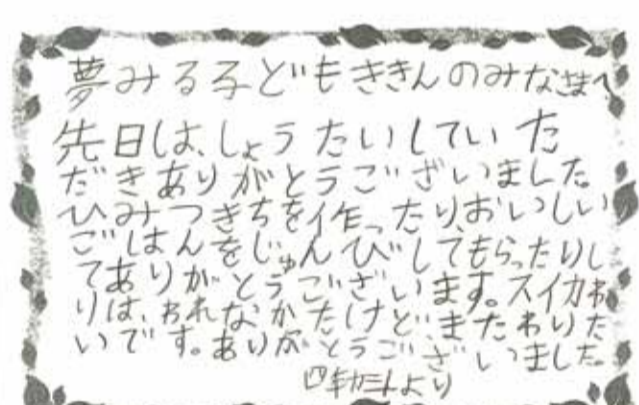 夢みる子どもききんのみなさまへ
先日は、しょうたいしていた
だきありがとうございました。
ひみつきちを作ったり、おいしい
ごはんをじゅんびしてもらったりし
てありがとうございます。スイカわ
りは、われなかたけど、またわりた
いです。ありがとうございました。
より